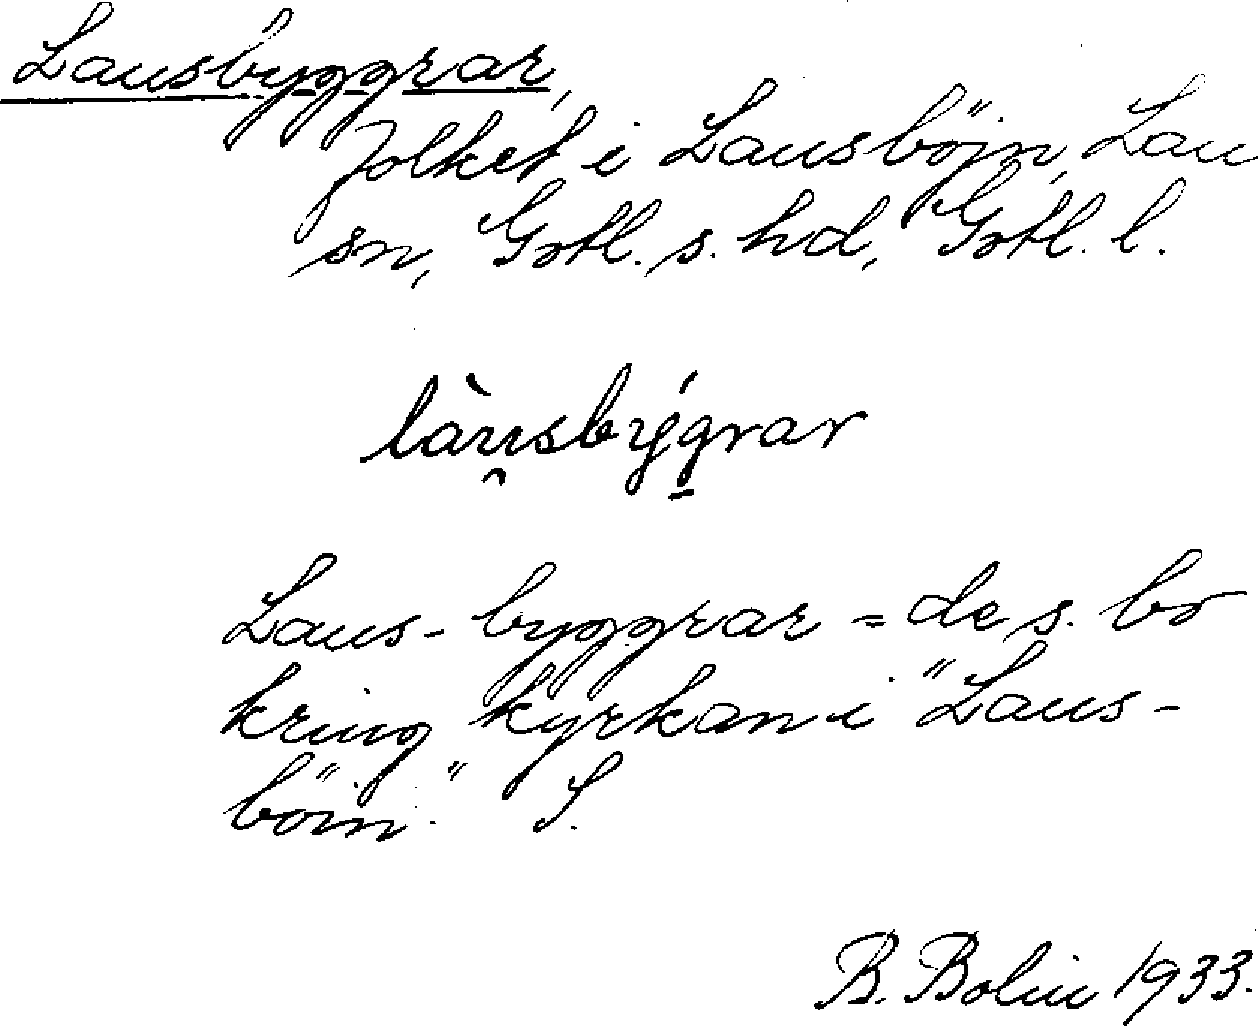 Lausbyggrar,
folket i Lausböjn, Lau
sn, Gotl. s. hd, Gotl. l.
làu̯sbýg̠rar
Laus-byggrar = de s. bo
kring kyrkan i "Laus-
böin." S.
B. Bolin 1933.